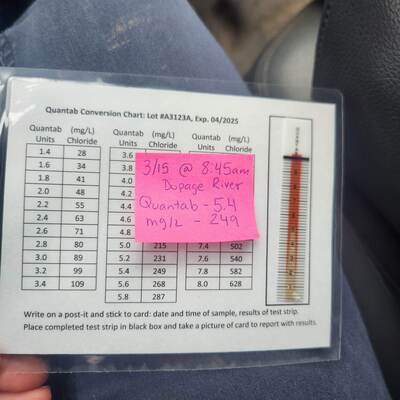 Quantab Conversion Chart: Lot #A3123A, Exp. 04/2025
Quantab Units (mg/L) Chloride
1.4 28
1.6 34
1.8 41
2.0 48
2.2 55
2.4 63
2.6 71
2.8 80
3.0 89
3.2 99
3.4 109
Quantab Units (mg/L) Chloride
3.6
3.8
4.0
4.2
4.4
4.6
4.8
5.0 215
5.2 231
5.4 249
5.6 268
5.8 287
Quantab Units (mg/L) Chloride
7.4 502
7.6 540
7.8 582
8.0 628
3/15 @ 8:45am
Dupage River
Quantab - 5.4
mg/L - 249
Write on a post-it and stick to card: date and time of sample, results of test strip.
Place completed test strip in black box and take a picture of card to report with results.